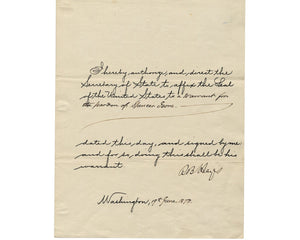 I hereby authorize and direct the
Secretary of State to affix the Seal
of the United States to a warrant for
the pardon of
dated this day, and signed by me
and for so doing this shall be his
warrant
R B Hayes
Washington, June, 187